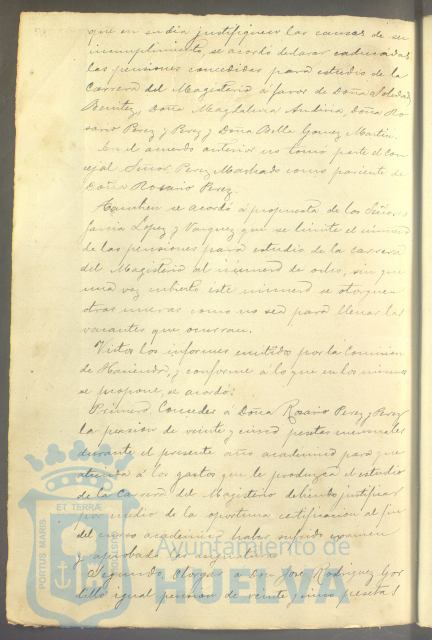 que en su dia justifiquen las causas de su
incumplimiento, se acordó declarar caducadas
las pensiones concedidas para estudio de la
Carrera del Magisterio á favor de Doña Soledad
Benitez, Doña Magdalena, Doña Ro-
sario Perez y Perez y Doña Bella Gomez Martin.
En el acuerdo anterior no tomó parte el con-
cejal Señor Perez Machado como pariente de
Doña Rosario Perez.
Tambien se acordó á propuesta de los Señores
Garcia Lopez y Vazquez que se limite el número
de las pensiones para estudio de la carrera
del Magisterio al número de ocho, sin que
una vez cubierto este número se otorguen
otras nuevas como no sea para llenar las
vacantes que ocurran.
Vistos los informes emitidos por la Comision
de Hacienda, y conforme á lo que en los mismos
se propone, se acordó:
Primero Conceder á Doña Rosario Perez y Perez
la pension de veinte y cinco pesetas mensuales
durante el presente año academico para que
atienda á los gastos que le produzca el estudio
de la Carrera del Magisterio debiendo justificar
por medio de la oportuna certificacion al fin
del curso academico haber sufrido examen
y aprobado
Segundo. Otorgar á don José Rodriguez Gor-
dillo igual pension de veinte y cinco pesetas
PORTUS MARIS ET TERRÆ CUSTODIA
Ayuntamiento de
HUELVA